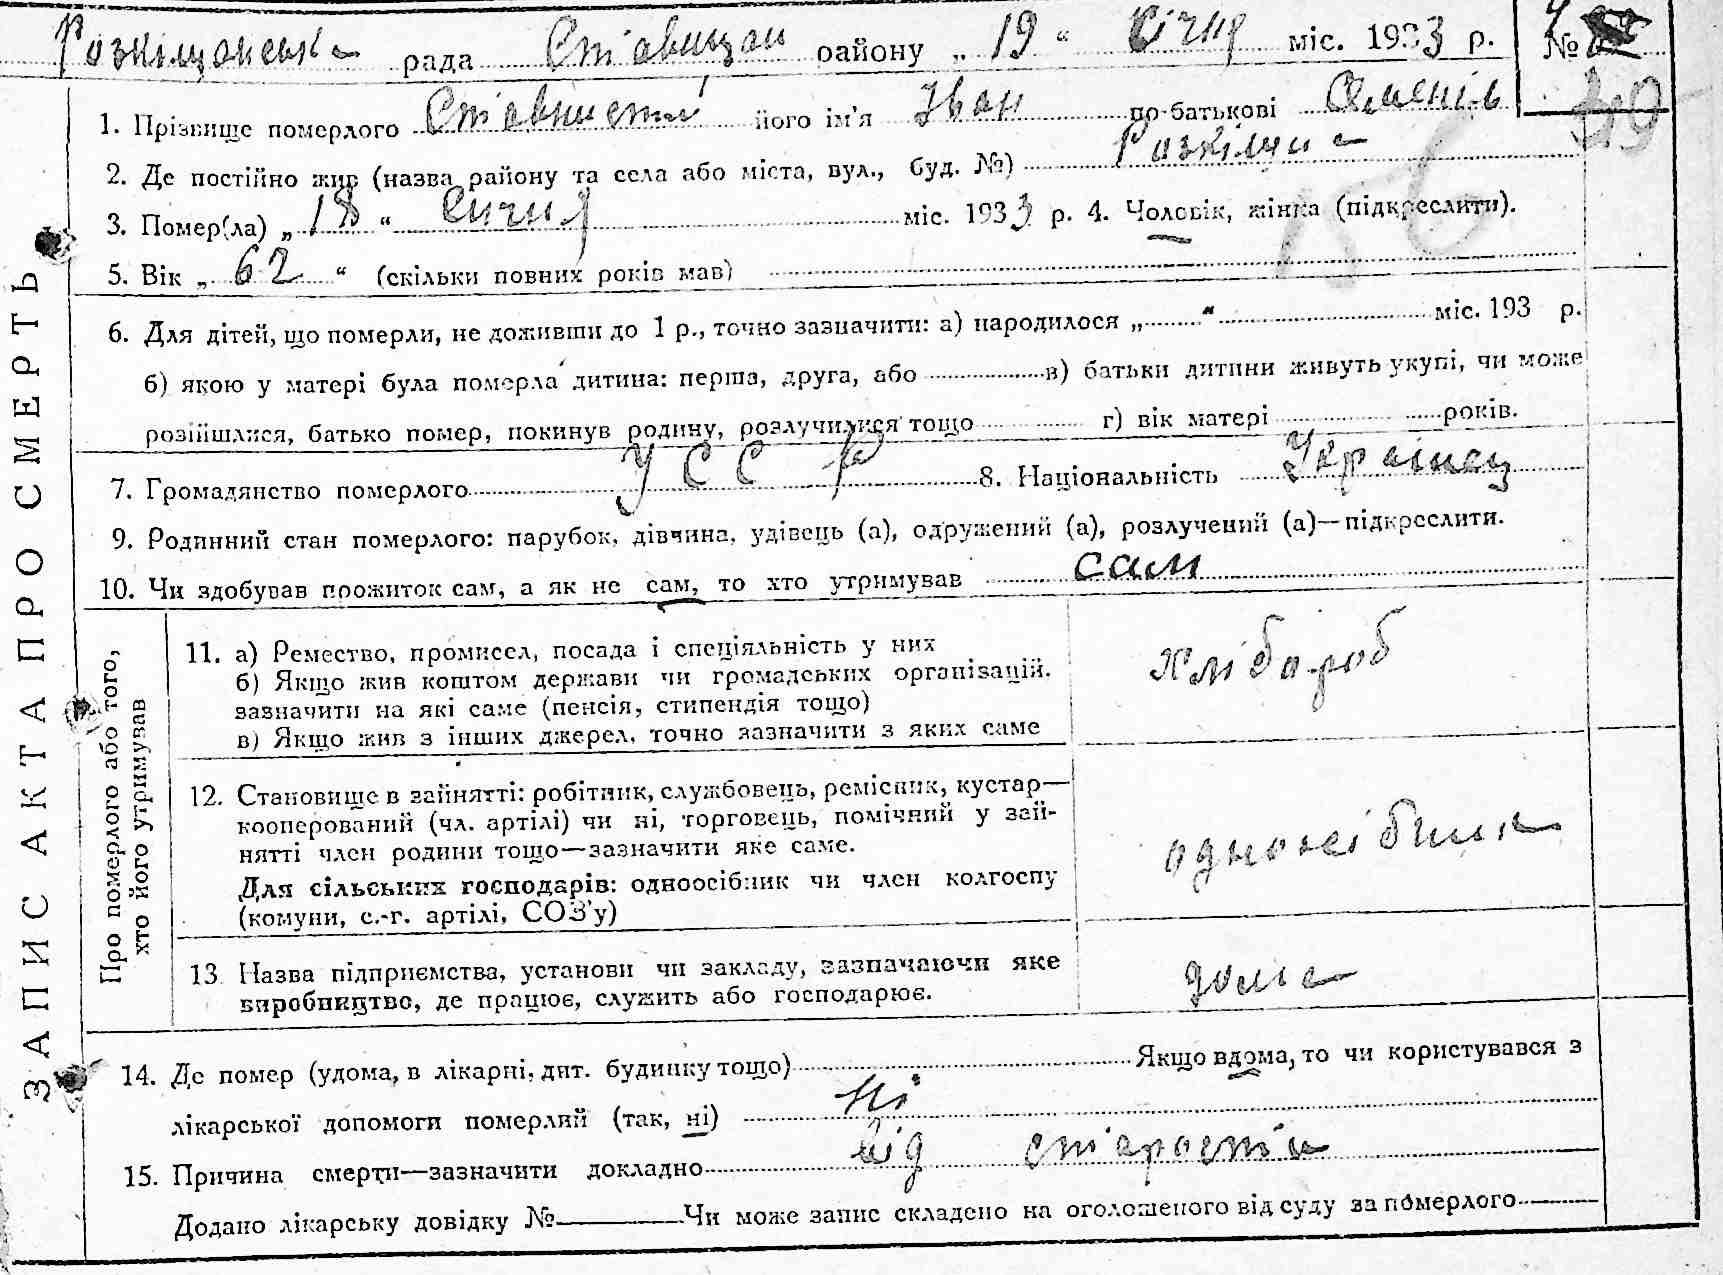 рада Ставищан району „ 19 “ Січня міс. 1933 р. №
ЗАПИС АКТА ПРО СМЕРТЬ
1. Прізвище померлого його ім'я Іван по-батькові
2. Де постійно жив (назва району та села або міста, вул., буд. №)
3. Помер(ла) „ 18 “ Сичня міс. 1933 р. 4. Чоловік, жінка (підкреслити).
5. Вік „ 62 “ (скільки повних років мав)
6. Для дітей, що померли, не доживши до 1 р., точно зазначити: а) народилося „ “ міс. 193 р.
б) якою у матері була померла дитина: перша, друга, або в) батьки дитини живуть укупі, чи може
розійшлися, батько помер, покинув родину, розлучилися тощо г) вік матері років.
7. Громадянство померлого УССР 8. Національність Українец
9. Родинний стан померлого: парубок, дівчина, удівець (а), одружений (а), розлучений (а)—підкреслити.
10. Чи здобував прожиток сам, а як не сам, то хто утримував сам
Про померлого або того,
хто його утримував
11. а) Ремество, промисел, посада і спеціяльність у них
б) Якщо жив коштом держави чи громадських організацій.
зазначити на які саме (пенсія, стипендія тощо)
в) Якщо жив з інших джерел, точно зазначити з яких саме
Хлібороб
12. Становище в зайнятті: робітник, службовець, ремісник, кустар—
кооперований (чл. артілі) чи ні, торговець, помічний у зай-
нятті член родини тощо—зазначити яке саме.
Для сільських господарів: одноосібник чи член колгоспу
(комуни, с.-г. артілі, СОЗ'у)
одноосібник
13 Назва підприємства, установи чи закладу, зазначаючи яке
виробництво, де працює, служить або господарює.
дома
14. Де помер (удома, в лікарні, дит. будинку тощо) Якщо вдома, то чи користувався з
лікарської допомоги померлий (так, ні) Ні
15. Причина смерти—зазначити докладно від старости
Додано лікарську довідку № Чи може запис складено на оголошеного від суду за померлого